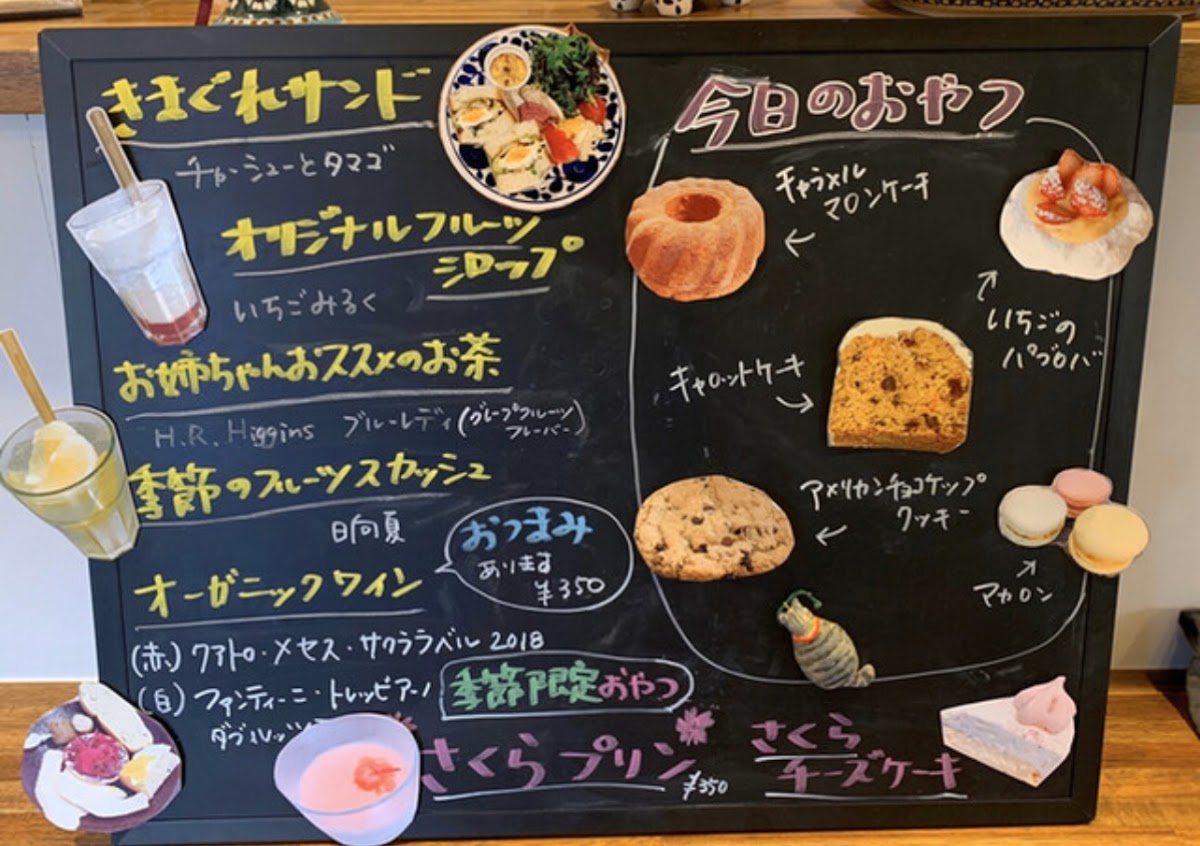 きまぐれサンド
チャーシューとタマゴ
オリジナルフルーツ
シロップ
いちごみるく
お姉ちゃんおススメのお茶
H.R.Higgins ブルーレディ(グレープフルーツ
フレーバー)
季節のフルーツスカッシュ
日向夏
おつまみ
あります
¥350
オーガニックワイン
(赤) クアトロ・メセス・サクララベル 2018
(白) ファンティーニ・トレッビアーノ
ダブルッツ
季節限定おやつ
さくらプリン
¥350
さくら
チーズケーキ
今日のおやつ
キャラメル
マロンケーキ
いちごの
パブロバ
キャロットケーキ
アメリカンチョコチップ
クッキー
マカロン